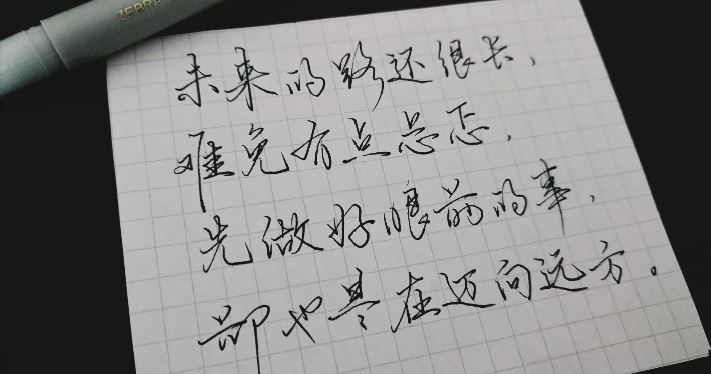 ZEBRA
未来的路还很长，
难免有点忐忑，
先做好眼前的事，
那也是在迈向远方。